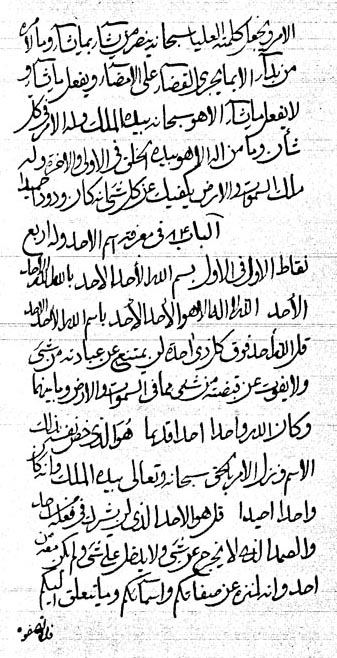 الامر ويجعل كلمته العليا سبحانه ينصر من يشآء بما يشآء وما لامره
من بدآء الا بما يجرى القضآء على الامضآء ويفعل ما يشآء و
لا يفعل ما يشآء الا هو سبحانه بيده الملك وله الامر فى كل
شأن وما من اله الا هو بيده الخلق فى الاولى والاخرة وله
ملك السموات والارض يكفيك عن كل شئ انه كان ودودا حميدا
الباب فى معرفة اسم الاحد وله اربع
نقاط الاول فى الاول بسم الله الأحد الأحد بالله الله الأحد
الأحد الله لا اله الا هو الأحد الأحد باسم الله الأحد الأحد
قل الله أحد فوق كل ذى احدة لن يمتنع عن عباده من شئ
ولا يفوت عن قبضته من شئ مما فى السموات والارض وما بينهما
وكان الله واحدا احدا قديما هو الذى خص نفسه بذلك
الاسم ونزل الامر بالحق سبحانه وتعالى بيده الملك وانه كان
واحدا احيدا قل هو الاحد الذى لن يشركه فى فعله احد
والصمد الذى لا يخرج عن شئ ولا يدخل عليه شئ ولم يكن معه من
احد وانه لمنزه عن صفاتكم واسمائكم وما يتعلق اليكم